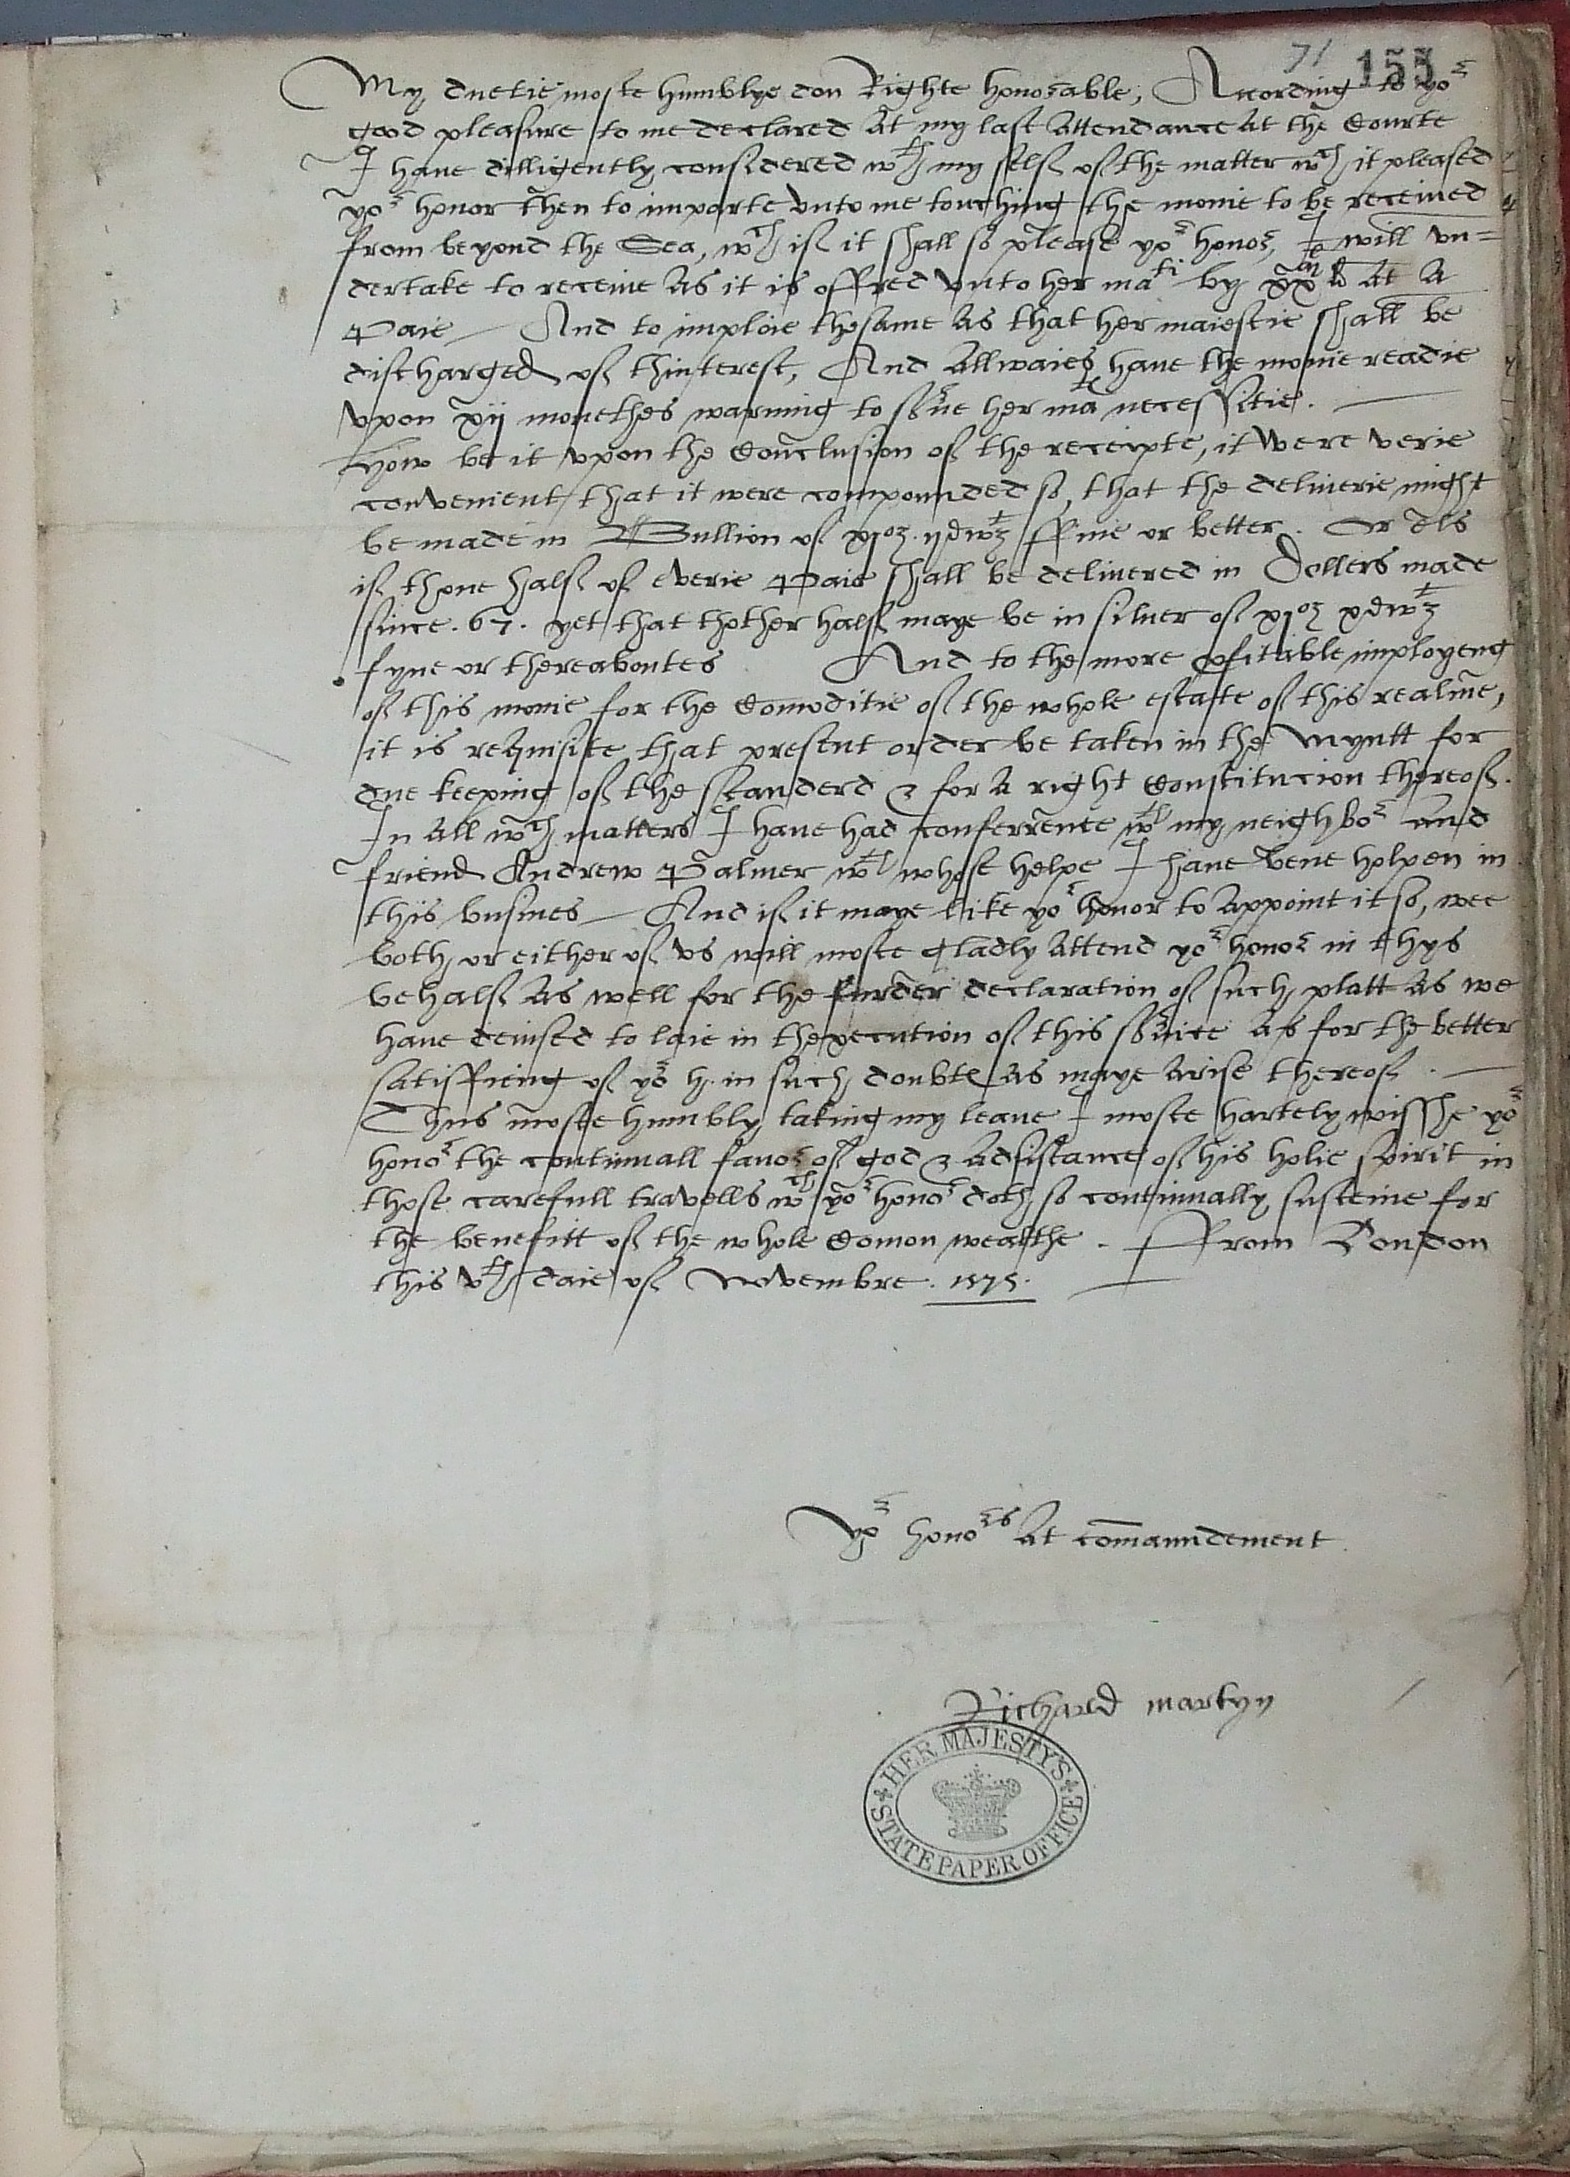 71 155
My duetie moste humblye don Righte honorable, According to yor
good pleasure to me declared At my last Attendance At the Courte
I haue dilligently considered wth my self of the matter wch it pleased
yor honor then to imparte vnto me touching the monie to be receiued
from beyond the Sea, wch if it shall so please yor honor, I will vn=
dertake to receiue As it is offred vnto her matie by xxm li At A
Paie And to imploie thesame As that her maiestie shall be
discharged of thinterest, And Allwaies haue the monie readie
vpon xij monethes warning to serue her mates necessitie.
How be it vpon the Conclusion of the receipte, it were verie
convenient that it were compounded so, that the deliuerie might
be made in Bullion of xj oz. ij dwt fine or better. Or els
if thone half of everie Paie shall be deliuered in Dollers made
since .67. yet that thother half maye be in siluer of xj oz x dwt
fyne or thereaboutes And to the more pfitable imployeng
of this monie for the Comoditie of the whole estate of this realme,
it is requisite that present order be taken in the Myntt for
due keeping of the standerd & for A right Constitucion thereof.
In All wch matters I haue had conferrence wth my neighbor and
friend Andrew Palmer wth whose helpe I haue bene holpen in
this busines And if it maye like yor honor to Appoint it so, wee
both or either of vs will moste gladly Attend yor honor in thys
behalf As well for the furder declaration of such platt As we
haue deuised to laie in thexecution of this seruice As for the better
satisffieng of yor h. in such doubtes As maye Arise thereof.
Thus moste humbly taking my leaue I moste hartely wisshe yor
honor the continuall fauor of god & Adsistance of his holie spirit in
those carefull travells wch yor honor doth so continually susteine for
the benefitt of the whole Comon wealthe. From London
this vth daie of Novembre. 1575.
Yor honors At commaundement
Richard martyn
HER MAJESTY'S
STATE PAPER OFFICE